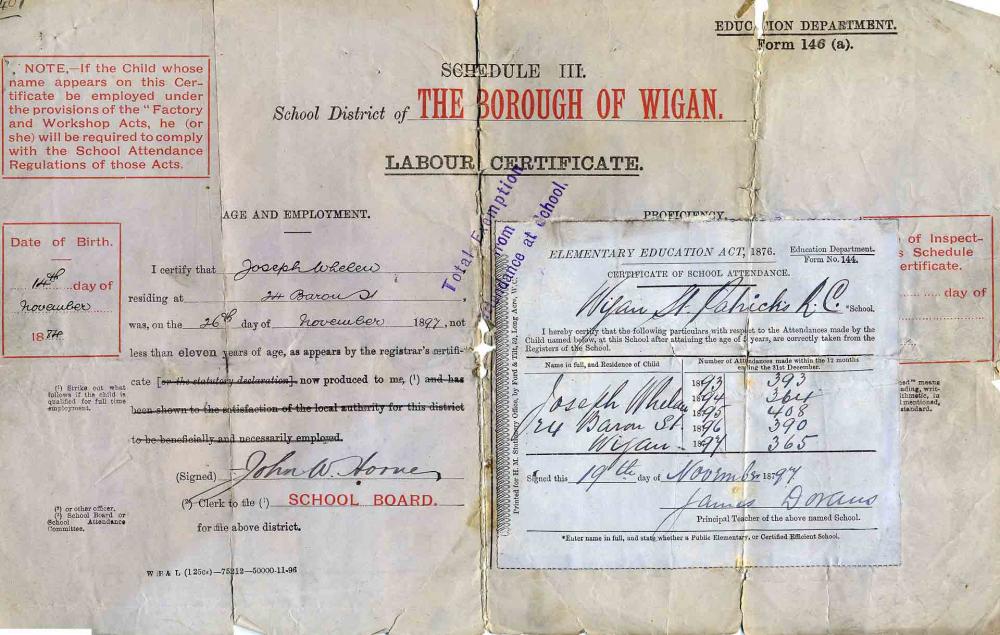 401
EDUCATION DEPARTMENT.
Form 146 (a).
NOTE,—If the Child whose
name appears on this Cer-
tificate be employed under
the provisions of the "Factory
and Workshop Acts, he (or
she) will be required to comply
with the School Attendance
Regulations of those Acts.
SCHEDULE III.
School District of THE BOROUGH OF WIGAN.
LABOUR CERTIFICATE.
Total Exemption
from
Attendance at School.
Date of Birth.
14th day of
November
18
AGE AND EMPLOYMENT.
I certify that Joseph Whelen
residing at 24 Baron St,
was, on the 26th day of November 1897, not
less than eleven years of age, as appears by the registrar's certifi-
cate [or the statutory declaration], now produced to me, (1) and has
been shown to the satisfaction of the local authority for this district
to be beneficially and necessarily employed.
(1) Strike out what
follows if the child is
qualified for full time
employment.
(Signed) John W.
(2) Clerk to the (3) SCHOOL BOARD.
for the above district.
(2) or other officer.
(3) School Board or
School Attendance
Committee.
W B & L (125cs)—75212—50000-11-96
PROFICIENCY.
of Inspect-
s Schedule
ertificate.
day of
ed" means
ading, writ-
ithmetic, is
mentioned,
standard.
Printed for H. M. Stationery Office, by Ford & Tilt, 52, Long Acre, W.C.
ELEMENTARY EDUCATION ACT, 1876.
Education Department.
Form No. 144.
CERTIFICATE OF SCHOOL ATTENDANCE.
Wigan St. Patricks R. C. *School.
I hereby certify that the following particulars with respect to the Attendances made by the
Child named below, at this School after attaining the age of 5 years, are correctly taken from the
Registers of the School.
Name in full, and Residence of Child
Number of Attendances made within the 12 months
ending the 31st December.
1893 393
Joseph Whelan 1894 364
1895 408
24 Baron St. 1896 390
Wigan 1897 365
Signed this 19th day of November 1897
James Dorans
Principal Teacher of the above named School.
*Enter name in full, and state whether a Public Elementary, or Certified Efficient School.